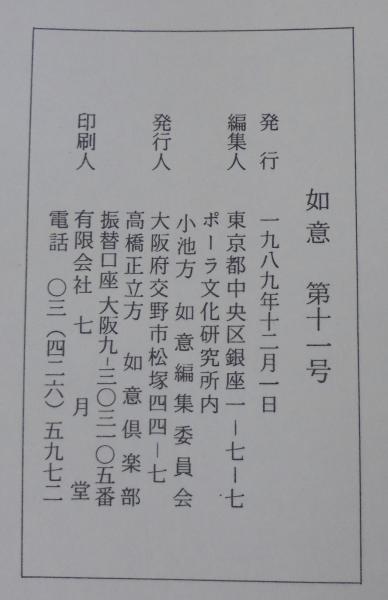 如意　第十一号
発　行　一九八九年十二月一日
編集人　東京都中央区銀座一ー七ー七
ポーラ文化研究所内
小池方　如意編集委員会
発行人　大阪府交野市松塚四四ー七
高橋正立方　如意倶楽部
振替口座 大阪九ー三〇三一〇五番
印刷人　有限会社　七　月　堂
電話　〇三（四二六）五九七二